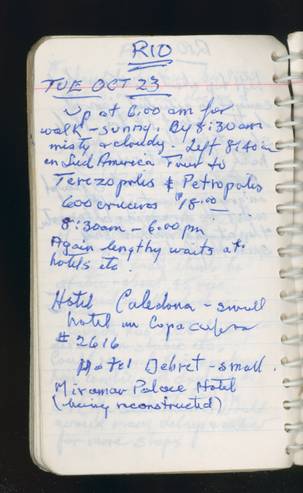 RIO
TUE OCT 23
Up at 6:00 am for
walk - sunny. By 8:30 am
misty & cloudy. Left 8:40 a
on Lied America Tour to
Terezopolis & Petropolis
600 cruceros $18.00
8:30am - 6:00 pm
Again lengthy waits at
hotels etc.
Hotel Caledona - small
hotel on Copacabana
# 2616
Hotel Debret - small.
Miramar Palace Hotel
(being reconstructed)